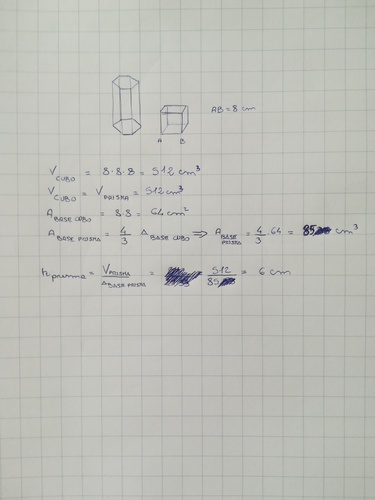 AB = 8 cm
A B
V CUBO = 8·8·8 = 512 cm³
V CUBO = V PRISMA = 512 cm³
A BASE CUBO = 8·8 = 64 cm²
A BASE PRISMA = 4/3 A BASE CUBO ⇒ A BASE PRISMA = 4/3 · 64 = 85 cm³
h prisma = V PRISMA / A BASE PRISMA = 512/85 = 6 cm